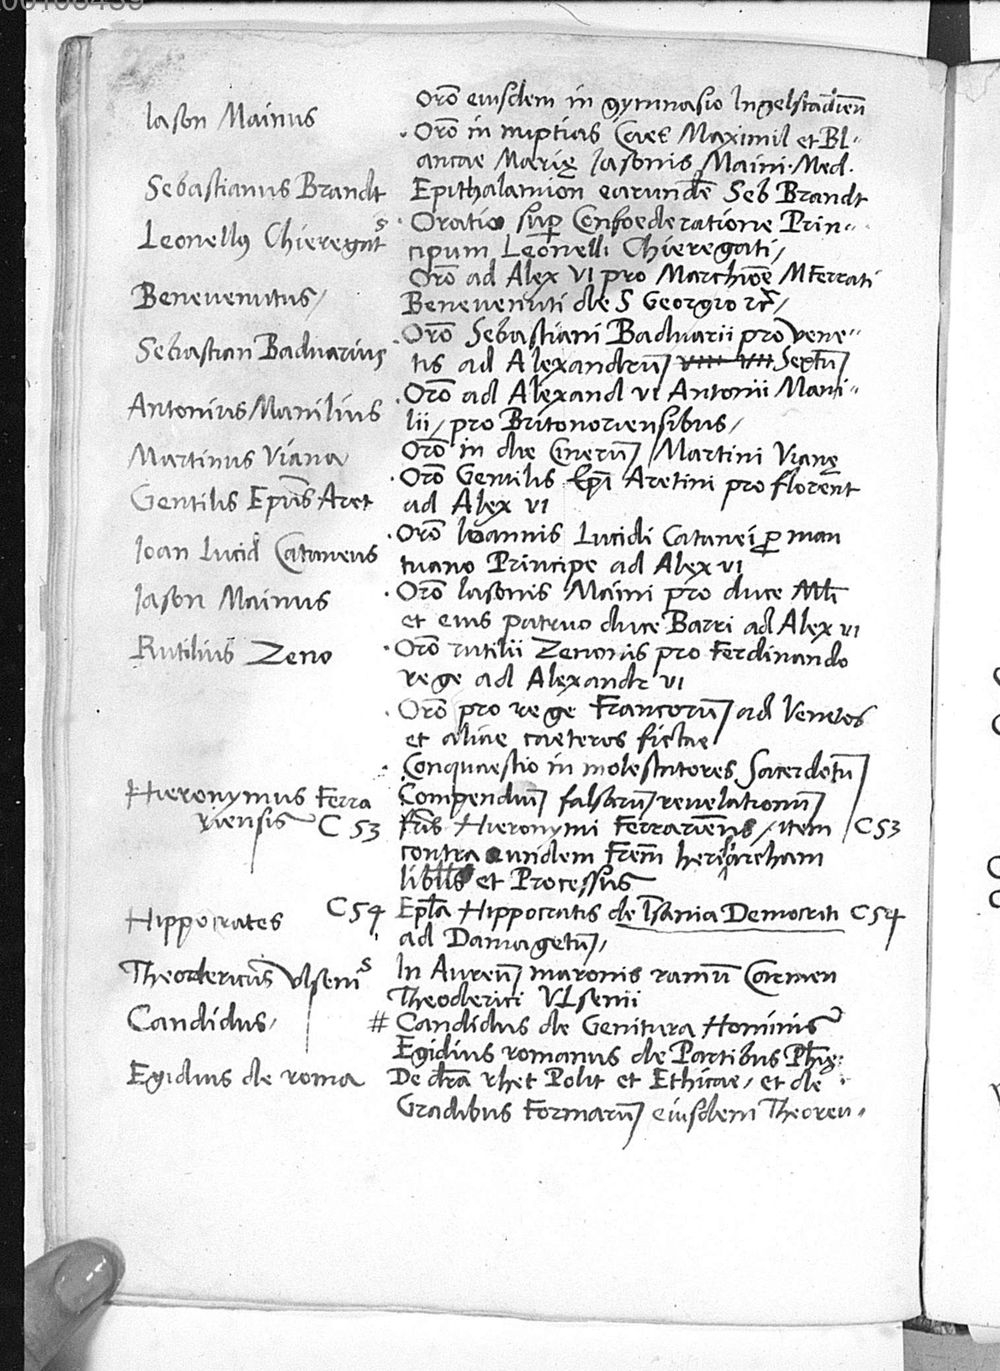 Orõ eiusdem in gymnasio Ingelstadieñ
Iason Mainus
· Orõ in nuptias Caes Maximil et Bl-
ancae Marię Iasonis Maini· Med.
Sebastianus Brandt Epithalamion earundē Seb Brandt
Leonellus Chieregats · Oratio sup Confoederatione Prin-
cipum Leonelli Chieregati/
Orõ ad Alex VI pro Marchiõe MFerrati
Benevenutus/ Benevenuti de S Georgio rc/
· Orõ Sebastiani Baduarii pro Vene-
Sebastian Baduarius tis ad Alexandrū Sextū/
· Orõ ad Alexand vi Antonii Mani-
Antonius Manilius lii, pro Britonoriensibus/
Martinus Viana Orõ in die Cinerū/ Martini Vianę
Gentilis Epūs Aret · Orõ Gentilis Epī Aretini pro florent
ad Alex VI
Ioan Lucid Cataneus · Orõ Ioannis Lucidi Catanei p man
tuano Principe ad Alex VI
Iason Mainus · Orõ Iasonis Maini pro duce Mli
et eius patruo duce Barri ad Alex vi
Rutilius Zeno · Orõ rutilii Zenonis pro Ferdinando
rege ad Alexandr vi
· Orõ pro rege Francorū/ ad Venetos
et aliae caeteros fictae
· Conquaestio in molestatores Sacerdotū/
Hieronymus Ferra Compendiū/ falsarū/ revelationū/
riensis C 53 frīs Hieronymi Ferrariēnis/ item C53
contra eundem Frēm heresiarcham
libellus et Processus
Hippocrates C54 Epła Hippocratis de Isania Democriti C54
ad Damagetū/
Theodericus Ulsenis In Aureū/ maronis ramū Carmen
Theoderici Ulsenii
Candidus/ # Candidus de Genitura Hominis
Egidius romanus de Partibus Phię:
Egidius de roma De dr̃a rhet Polit et Ethicae, et de
Gradibus Formarū/ eiusdem Theoreu-